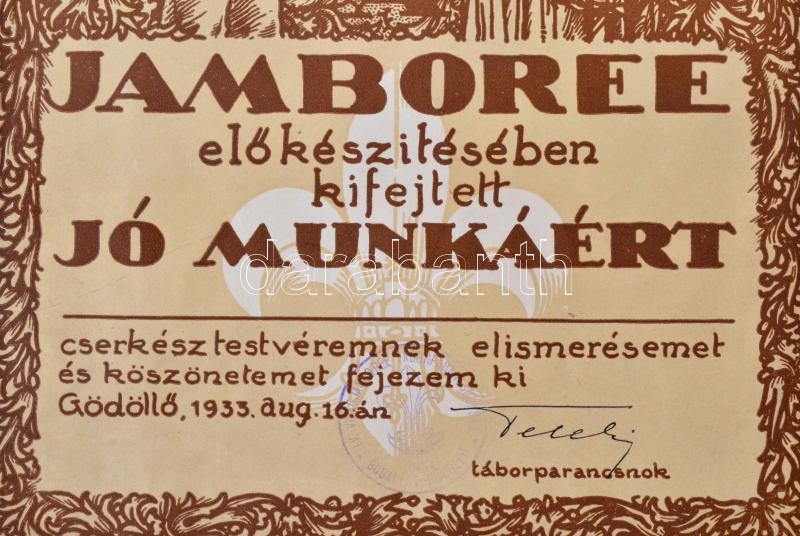 JAMBOREE
előkészitésében
kifejtett
JÓ MUNKÁÉRT
darabanth
cserkésztestvéremnek elismerésemet
és köszönetemet fejezem ki
Gödöllő, 1933. aug. 16.án
Teleki
táborparancsnok